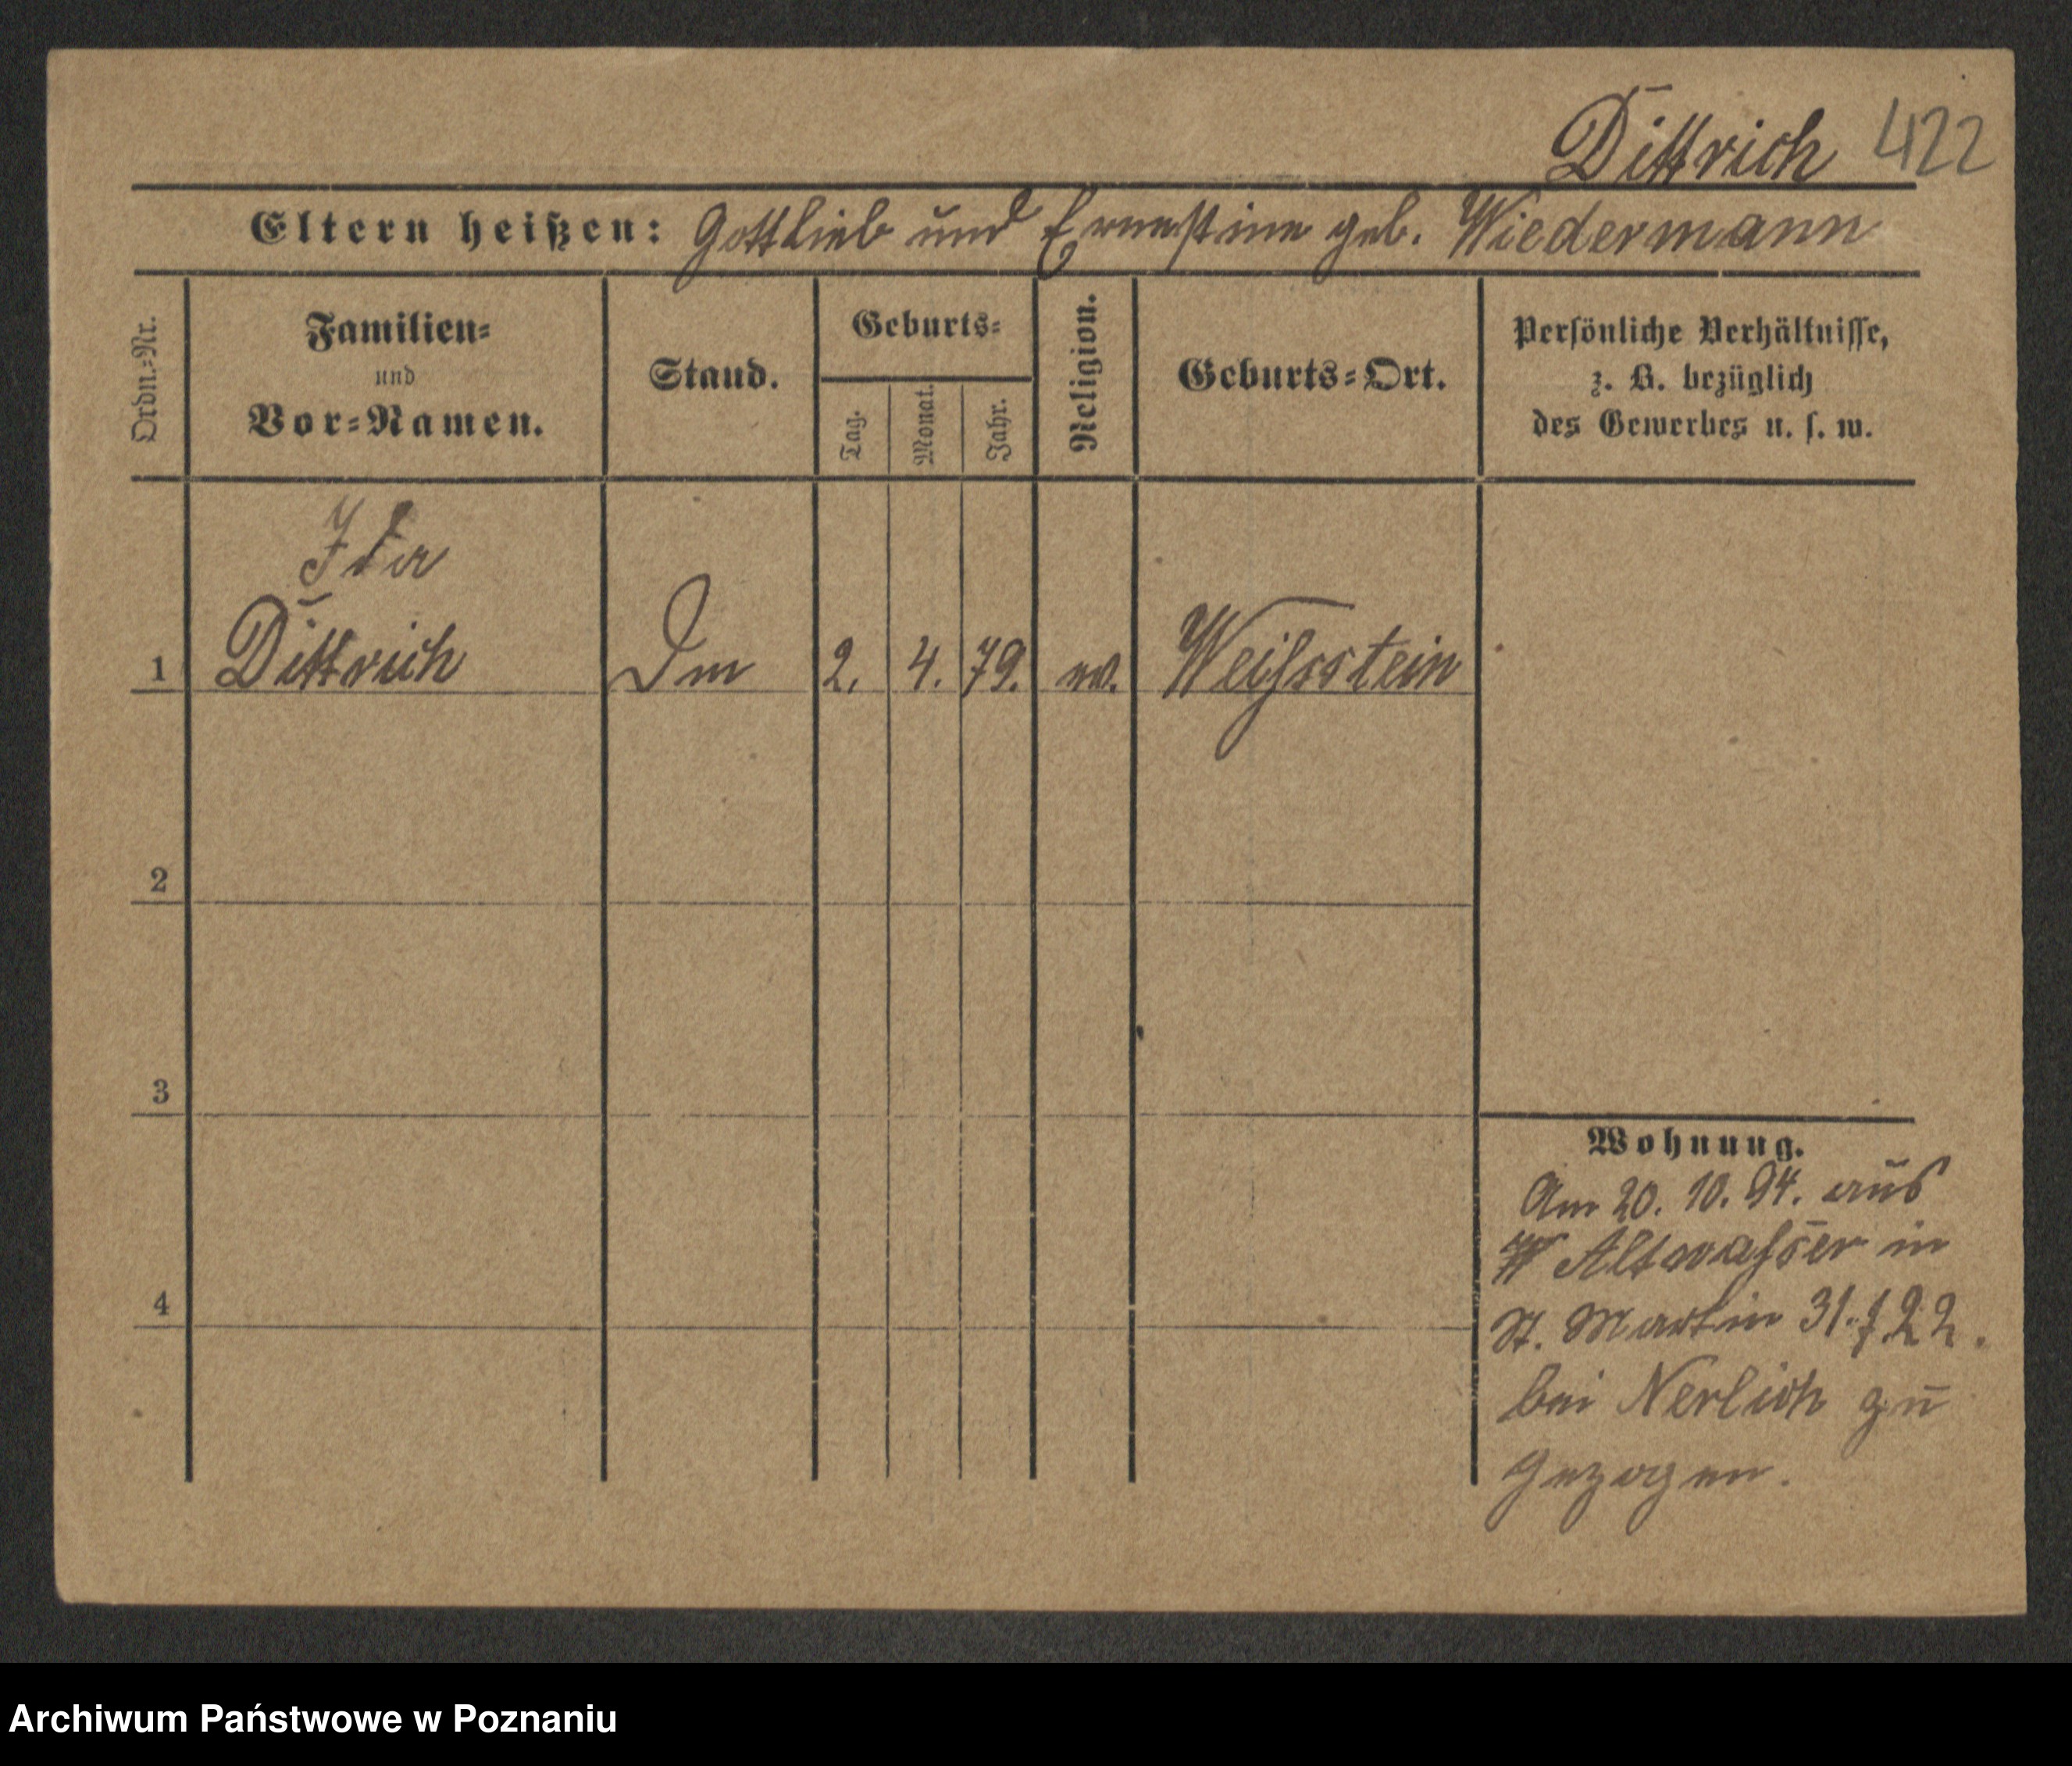 Dittrich 422
Eltern heißen: Gottlieb und Ernestine geb. Wiedermann
Ordn.=Nr.
Familien=
und
Vor=Namen.
Stand.
Geburts=
Tag.
Monat.
Jahr.
Religion.
Geburts=Ort.
Persönliche Verhältnisse,
z. B. bezüglich
des Gewerbes u. s. w.
Ida
1 Dittrich 2. 4. 79. ev. Weissstein
2
3
4
Wohnung.
Am 20. 10. 94. aus
Altwasser in
St. Martin 31.
bei Nerlich zu
gezogen.
Archiwum Państwowe w Poznaniu